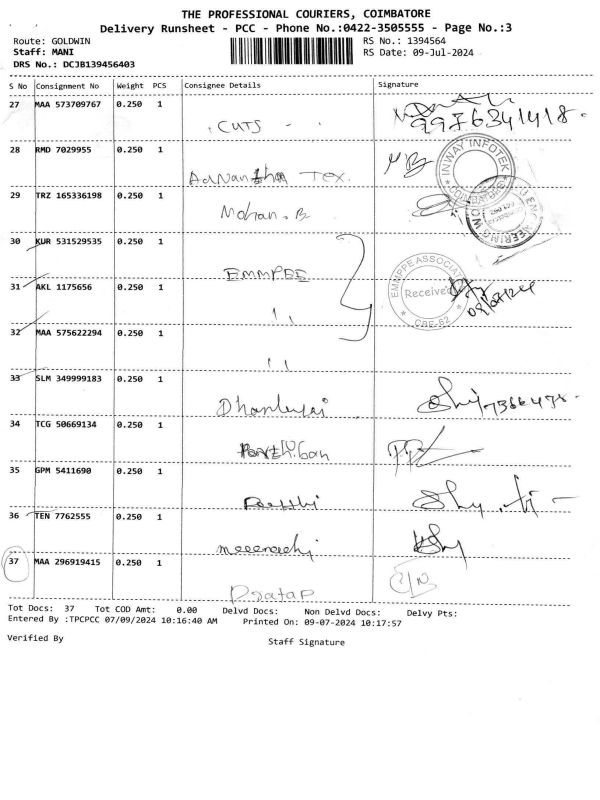 THE PROFESSIONAL COURIERS, COIMBATORE
Delivery Runsheet - PCC - Phone No.:0422-3505555 - Page No.:3
Route: GOLDWIN
RS No.: 1394564
Staff: MANI
RS Date: 09-Jul-2024
DRS No.: DCJB139456403
S No Consignment No Weight PCS Consignee Details Signature
27 MAA 573709767 0.250 1
CUTS
9976341418
28 RMD 7029955 0.250 1
Tex.
INWAY INFOTEK
COIMBATORE
29 TRZ 165336198 0.250 1
Mohan. B
30 KUR 531529535 0.250 1
EMMPEE
EMMPEE ASSOCIAT
31 AKL 1175656 0.250 1
Received
CBE-62
32 MAA 575622294 0.250 1
33 SLM 349999183 0.250 1
34 TCG 50669134 0.250 1
Parthiban
35 GPM 5411690 0.250 1
36 TEN 7762555 0.250 1
meeenachi
37 MAA 296919415 0.250 1
Pratap
Tot Docs: 37 Tot COD Amt: 0.00 Delvd Docs: Non Delvd Docs: Delvy Pts:
Entered By :TPCPCC 07/09/2024 10:16:40 AM Printed On: 09-07-2024 10:17:57
Verified By Staff Signature